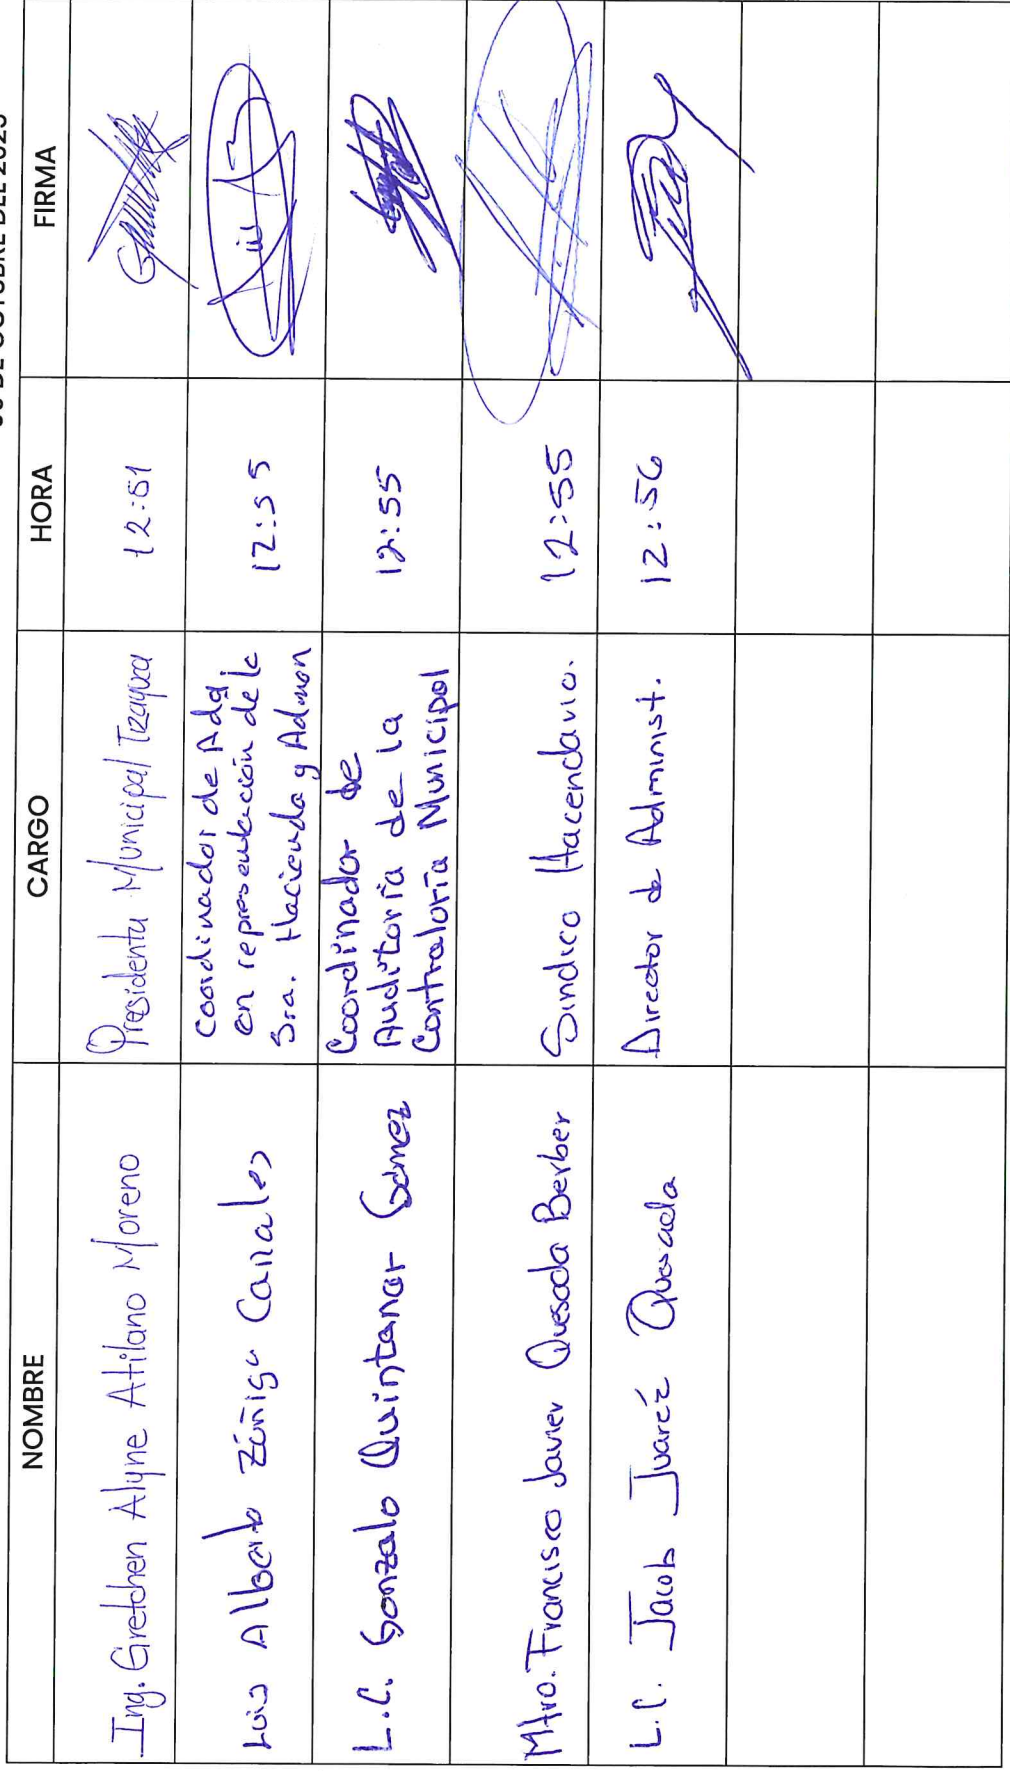 DE OCTUBRE DEL 2023
NOMBRE CARGO HORA FIRMA
Ing. Gretchen Alyne Atilano Moreno Presidenta Municipal Tizayuca 12:51
Luis Alberto Zúñiga Canales
Coordinador de Adq
en representación de la
Sra. Hacienda y Admon
12:55
L.C. Gonzalo Quintanar Gomez
Coordinador de
Auditoría de la
Contraloría Municipal
12:55
Mtro. Francisco Javier Quesada Berber Sindico Hacendario. 12:55
L.C. Jacob Juaréz Quesada Director de Administ. 12:56